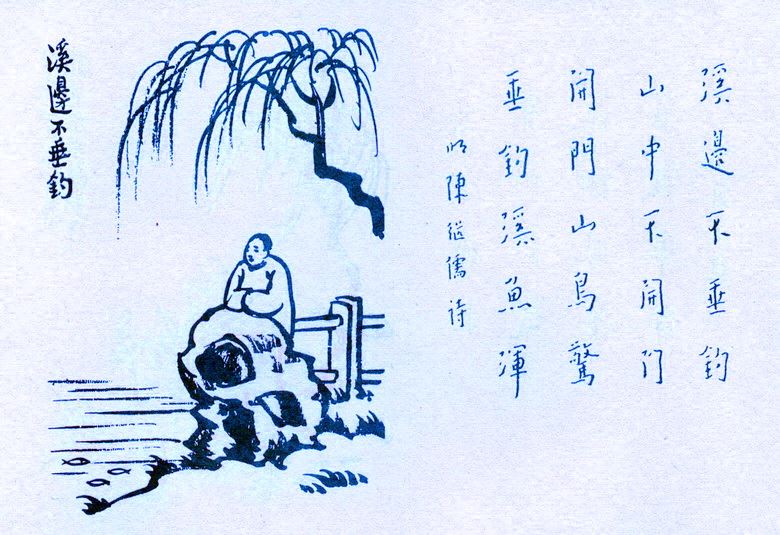 溪邊不垂釣
山中不開门
開門山鳥驚
垂釣溪魚渾
明陳继儒诗
溪邊不垂釣